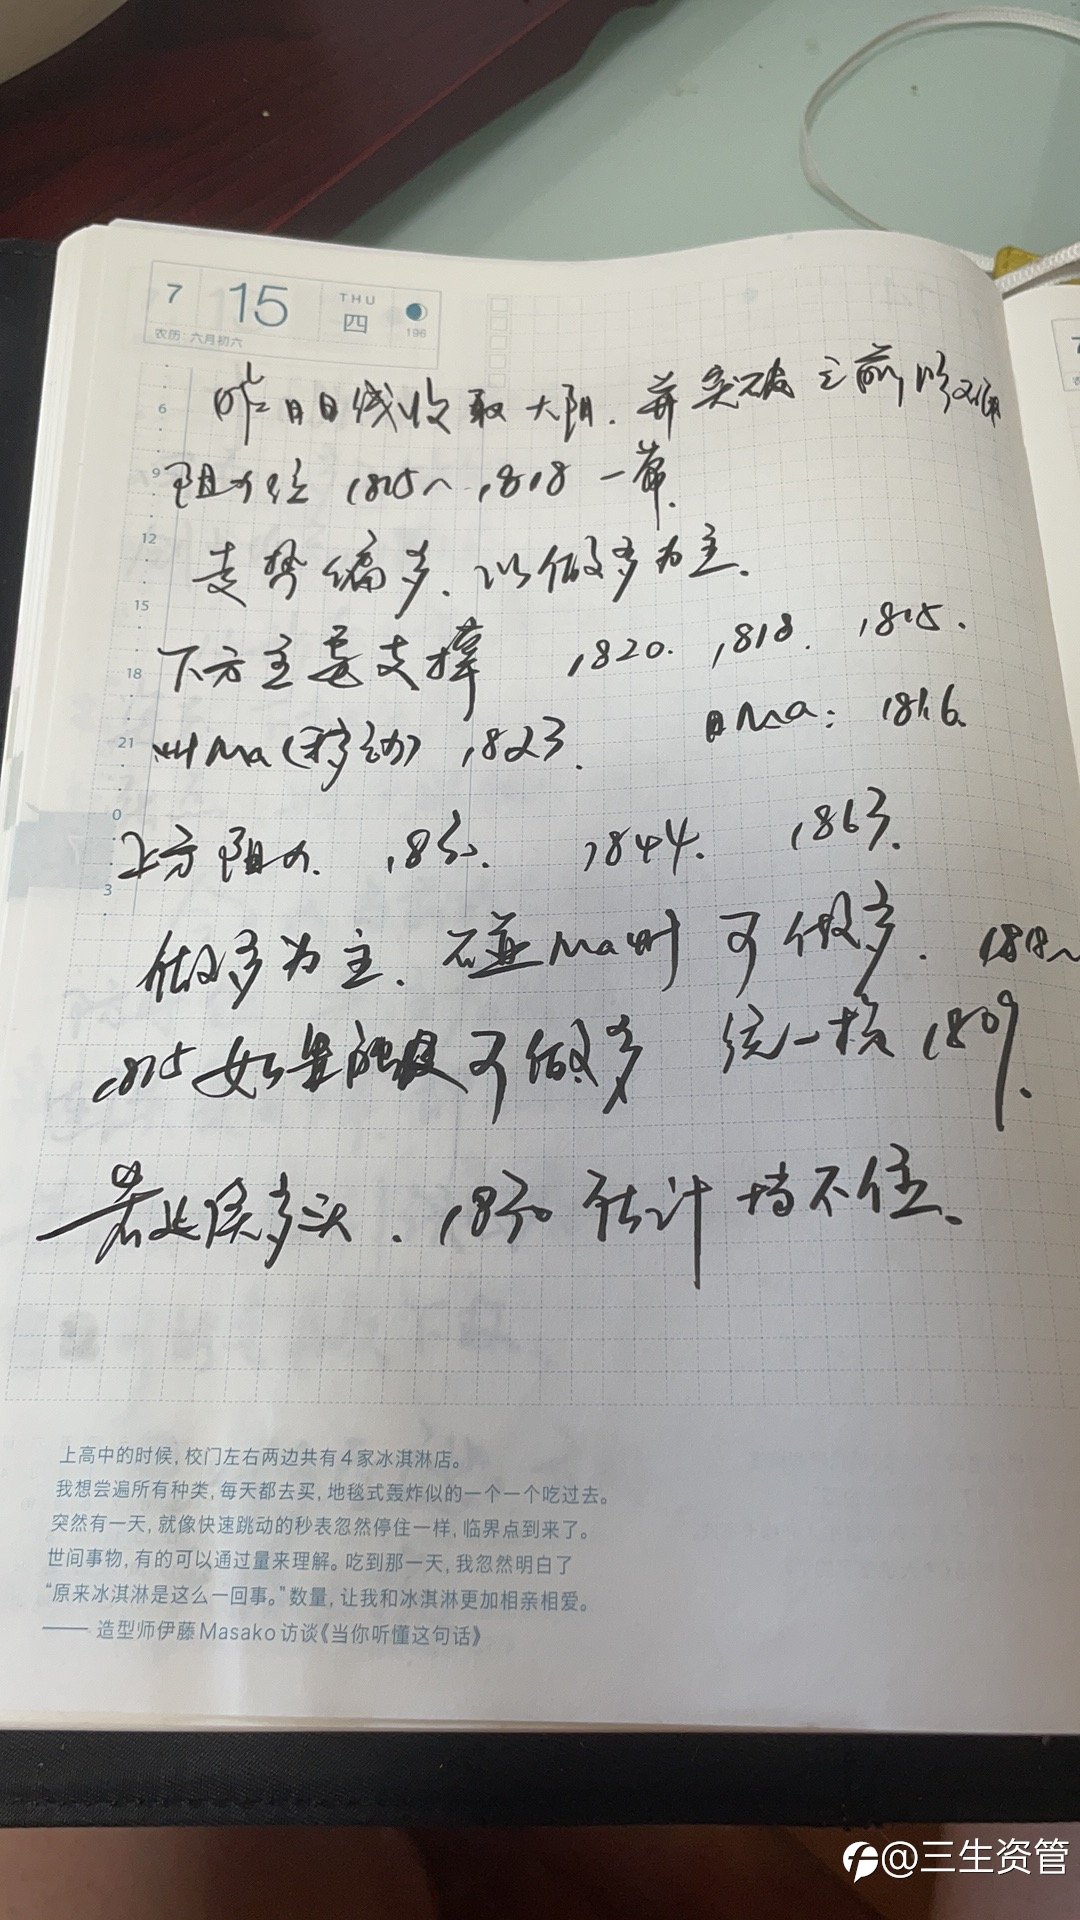 7 15 THU 四 196
农历 六月初六
昨日日线收取大阳.并突破之前
阻力位 1815~1818一带.
走势偏多.以做多为主.
下方主要支撑 1820. 1818. 1815.
4H Ma(移动) 1823. 日Ma: 1816.
上方阻力. 1830. 1844. 1863.
做多为主.碰Ma时可做多. 1818~
1815如果触及可做多 统一损1809.
若延续多头.1830估计挡不住.
6
9
12
15
18
21
0
3
上高中的时候,校门左右两边共有4家冰淇淋店。
我想尝遍所有种类,每天都去买,地毯式轰炸似的一个一个吃过去。
突然有一天,就像快速跳动的秒表忽然停住一样,临界点到来了。
世间事物,有的可以通过量来理解。吃到那一天,我忽然明白了
“原来冰淇淋是这么一回事。”数量,让我和冰淇淋更加相亲相爱。
—— 造型师伊藤Masako访谈《当你听懂这句话》
@三生资管